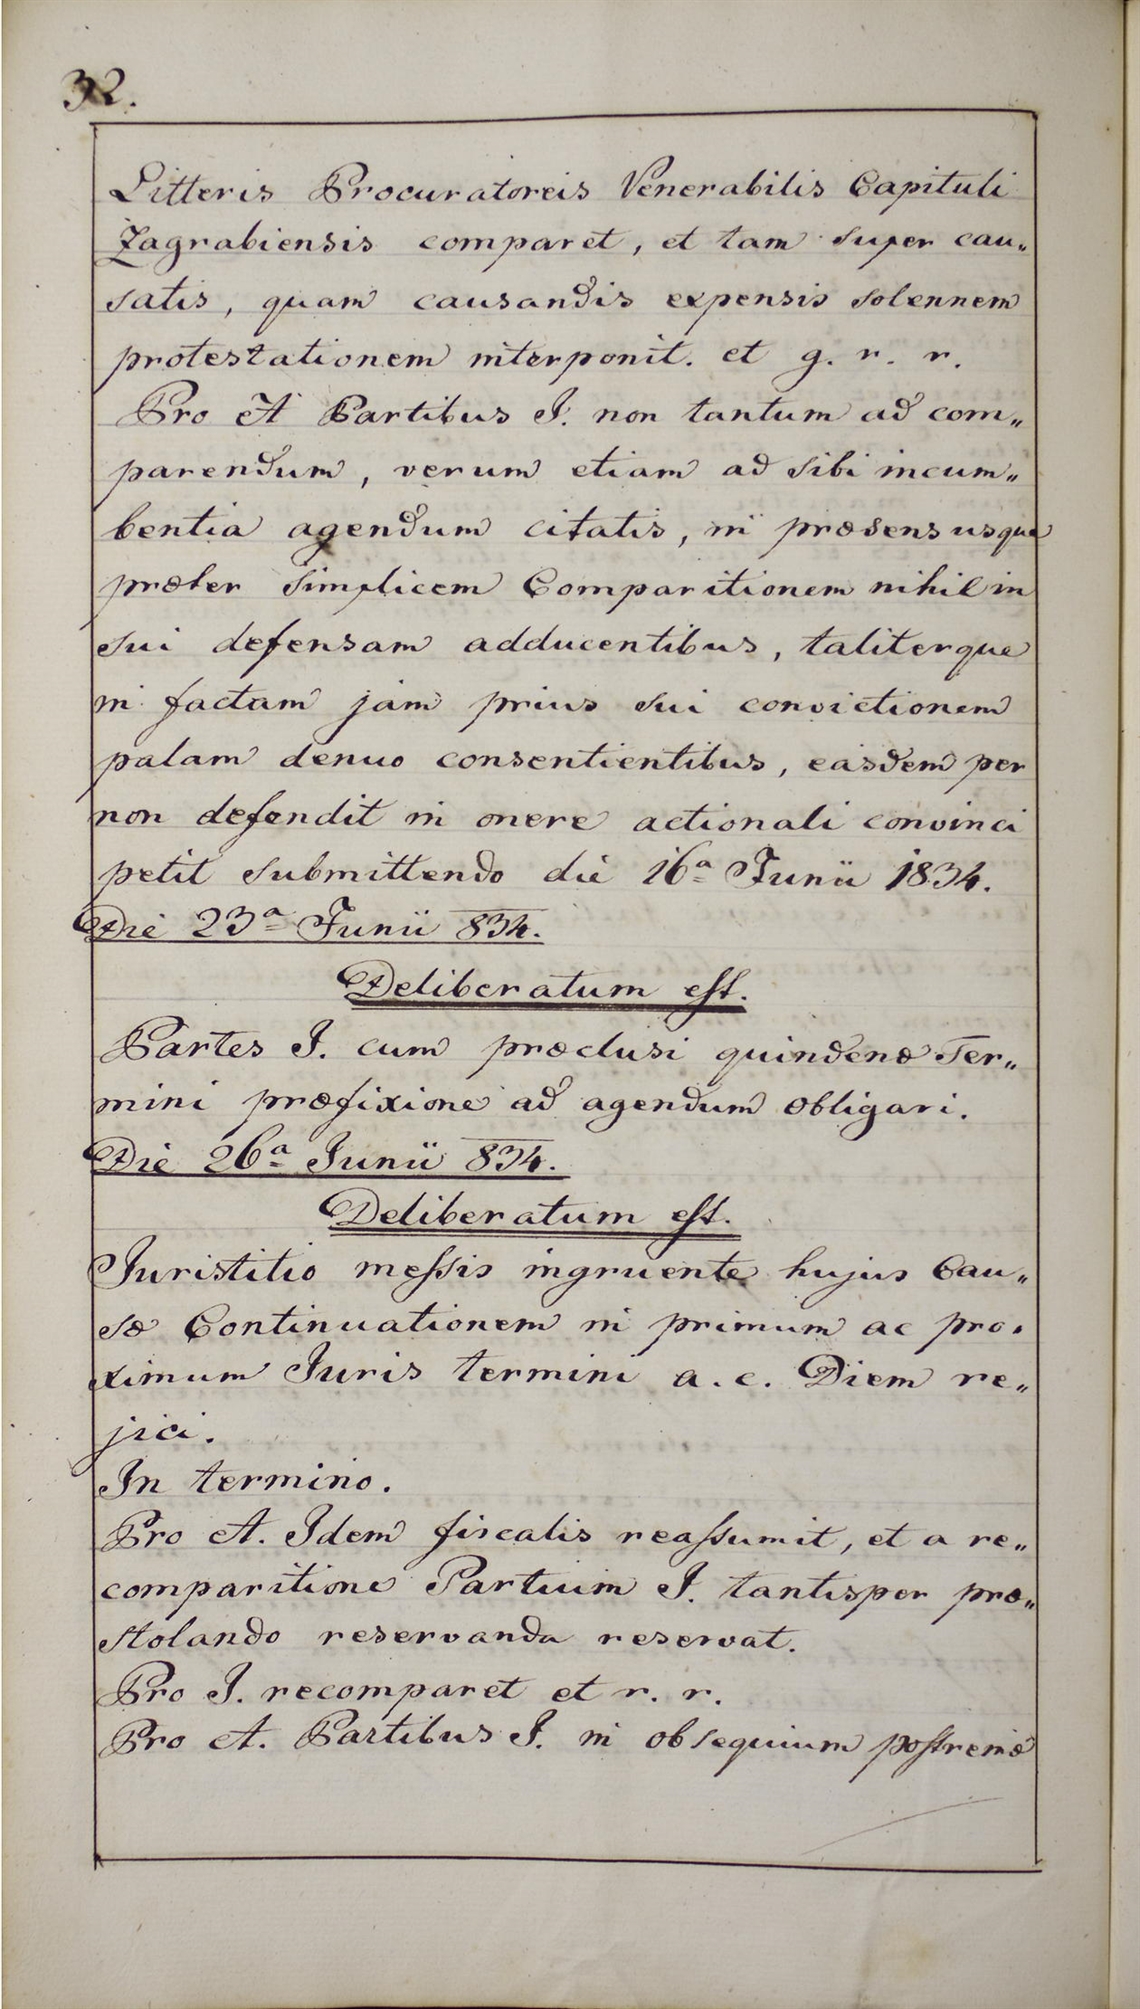 32.
Litteris Procuratoreis Venerabilis Capituli
Zagrabiensis comparet, et tam super cau„
satis, quam causandis expensis solennem
protestationem interponit. et g. r. r.
Pro A Partibus I. non tantum ad com„
parendum, verum etiam ad sibi incum„
bentia agendum citatis, in præsens usque
præter simplicem Comparitionem nihil in
sui defensam adducentibus, taliterque
in factam jam prius sui convictionem
palam denuo consentientibus, easdem per
non defendit in onere actionali convinci
petit submittendo die 16a Junii 1834.
Die 23a Junii 834.
Deliberatum est.
Partes I. cum præclusi quindenæ Ter„
mini præfixione ad agendum obligari.
Die 26a Junii 834.
Deliberatum est.
Juristitio messis ingruente hujus Cau„
sæ Continuationem in primum ac pro„
ximum Juris termini a. c. Diem re„
jici.
In termino.
Pro A. Idem fiscalis reassumit, et a re„
comparitione Partium I. tantisper præ„
stolando reservanda reservat.
Pro I. recomparet et r. r.
Pro A. Partibus I. in obsequium postremæ